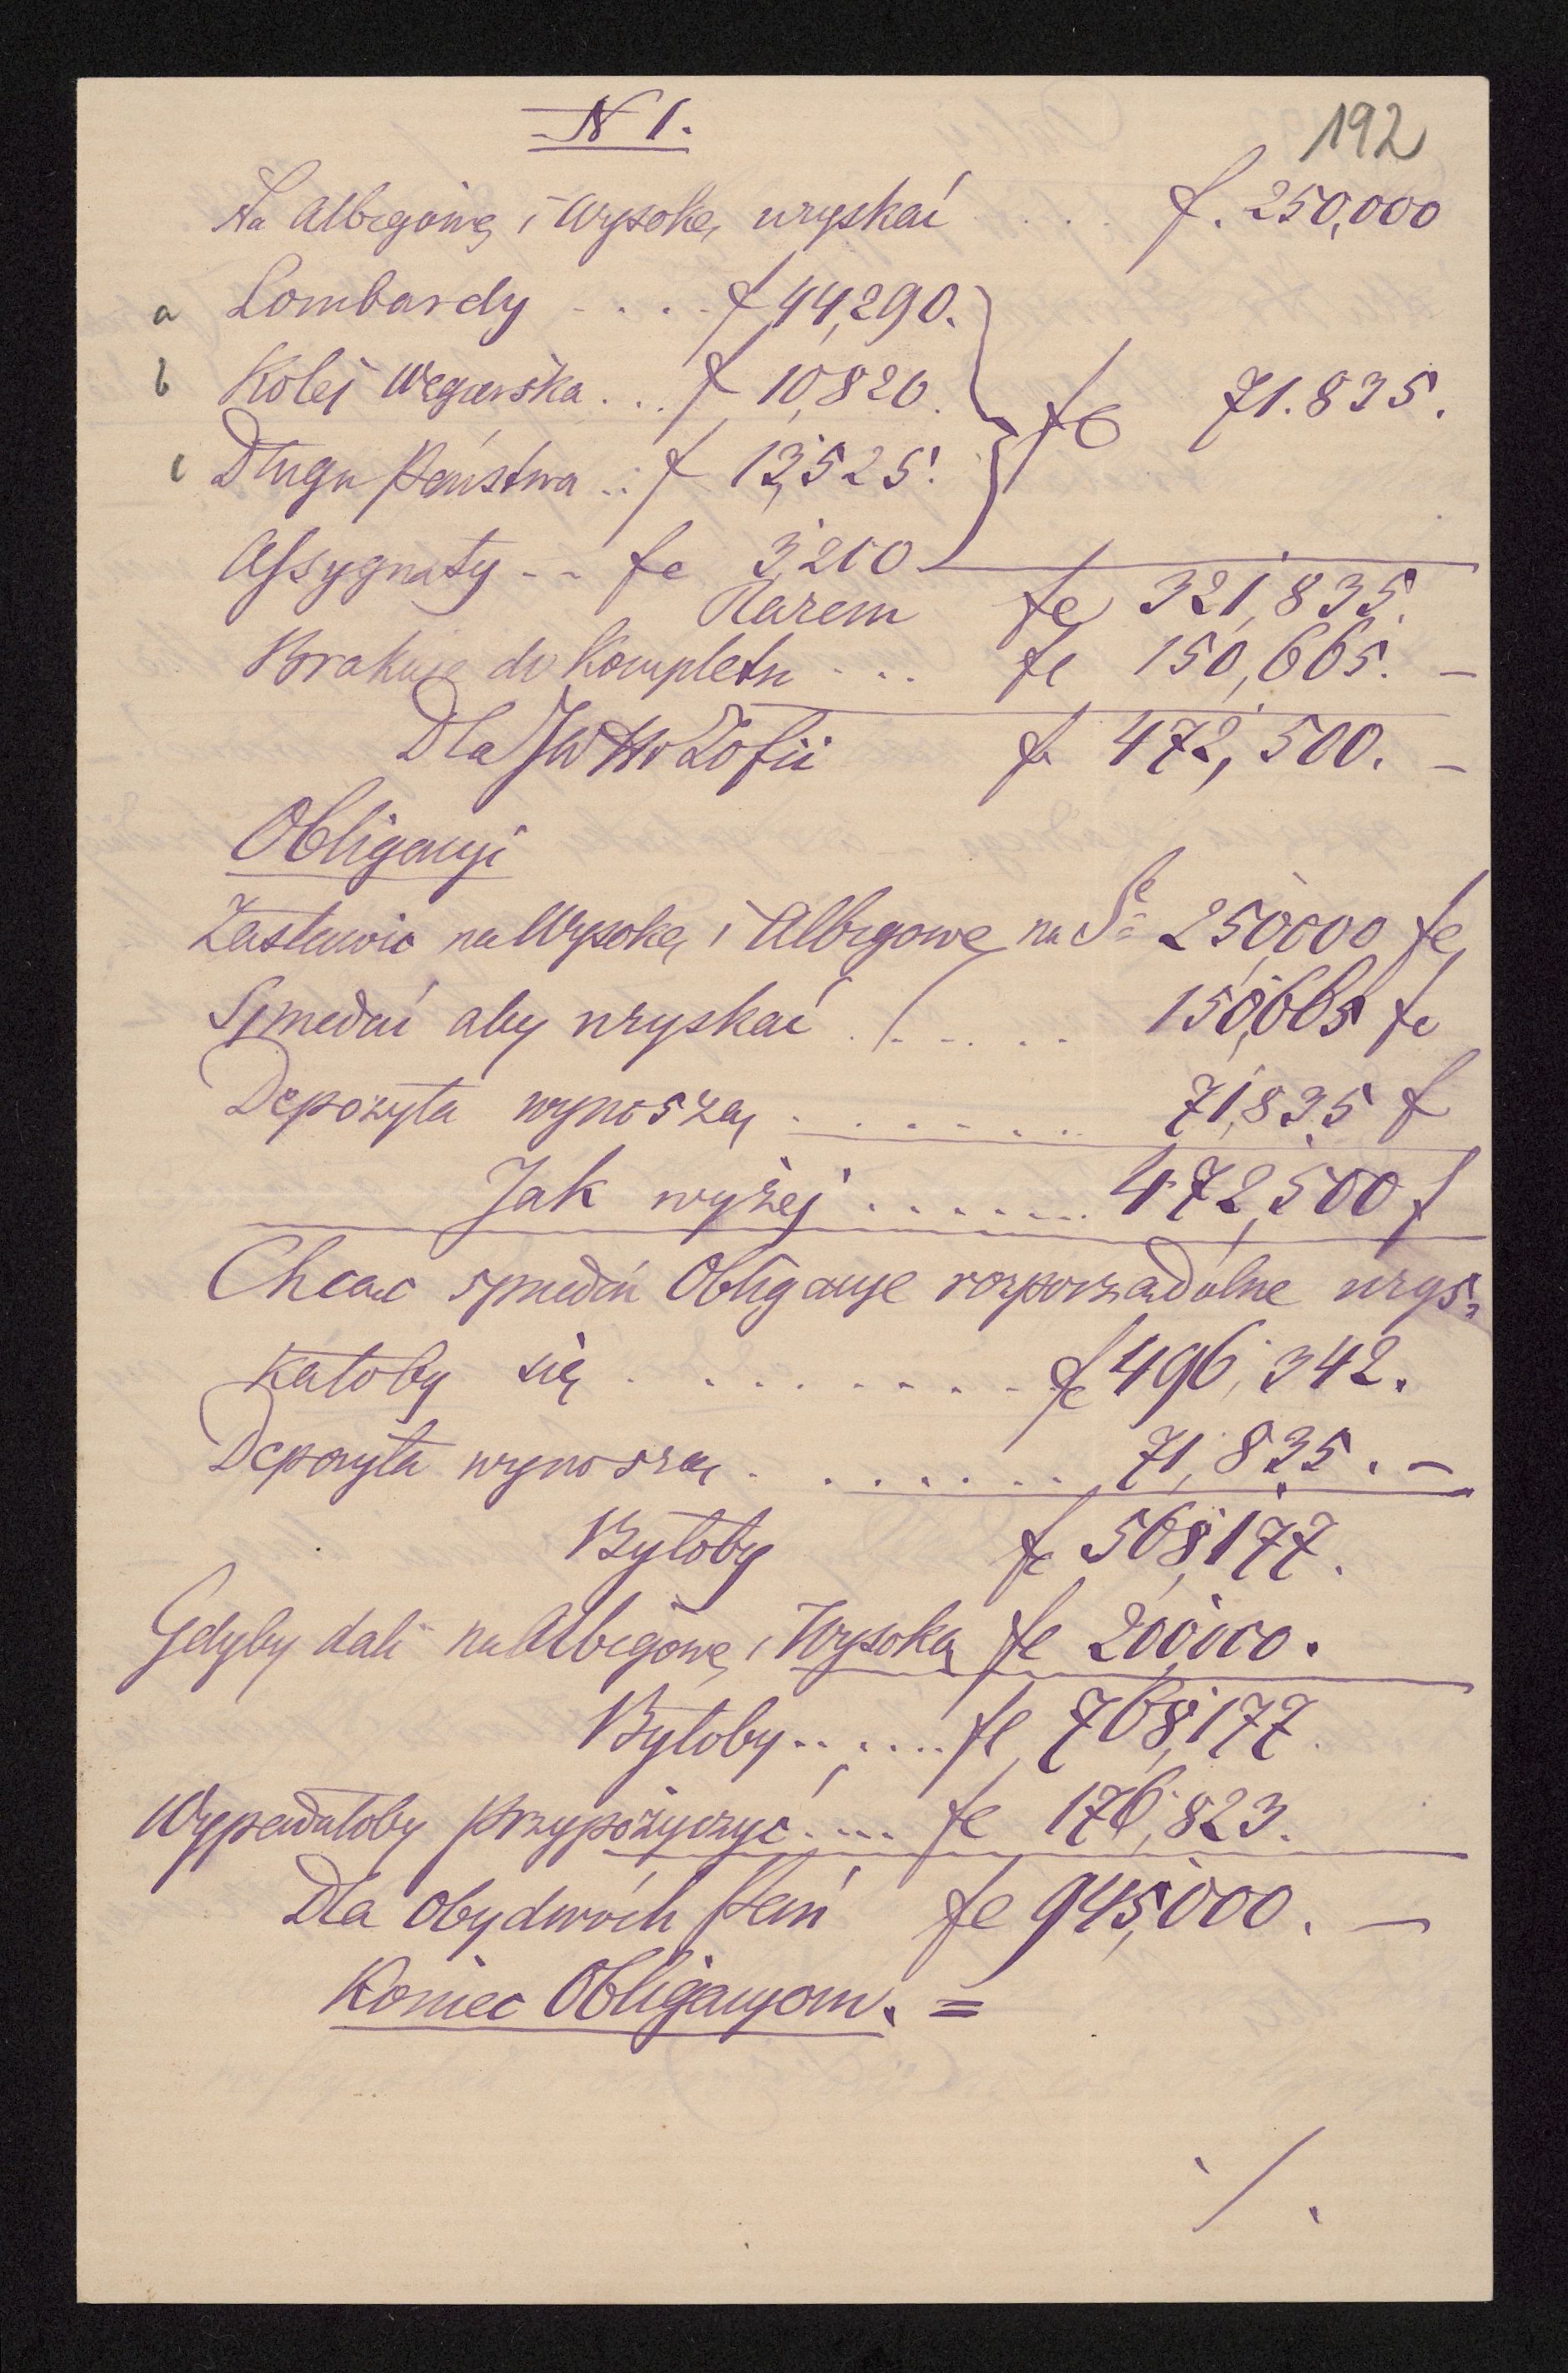 N 1.
192
Na Albigowę i Wysokę uzyskać . . . f. 250,000
a Lombardy . . . . f 44,290.
b Kolej Węgierska . . . f 10,820.
fe 71.835.
c Długu Państwa . . . f 13,525.
Assygnaty - - fe 3,200
Razem fe 321,835.
Brakuje do Kompletu . . . fe 150,665. –
Dla JW Hr Zofii fe 472,500. –
Obligacyi
Zastawić na Wysokę i Albigowę na 250,000 fe
Sprzedać aby uzyskać . . . . . . 150,665 fe
Depozyta wynoszą . . . . . . 71,835 f
Jak wyżej . . . . . . . 472,500 f
Chcąc sprzedać Obligacyje rozporządzalne uzys=
kałoby się . . . . . . . . . fe 496,342.
Depozyta wynoszą . . . . . . . 71,835. –
Byłoby fe 568,177.
Gdyby dali na Albigowę i Wysokę fe 200,000.
Byłoby . . . . . . fe 768,177.
Wypadałoby przypożyczyć . . . . fe 176,823.
Dla obydwóch Pań fe 945,000. –
Koniec Obligacyom. =
/.